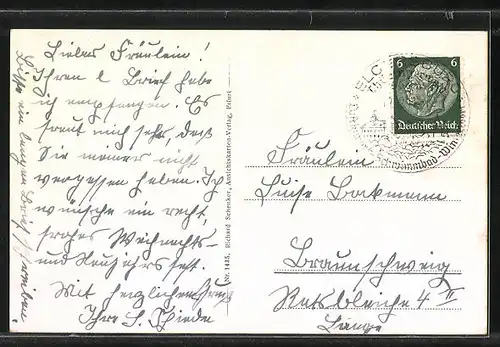 Liebes Fräulein!
Ihren l. Brief habe
ich empfangen. Es
freut mich sehr daß
Sie meiner nicht
vergessen haben. Ich
wünsche ein recht
frohes Weihnachts-
und Neujahrsfest.
Mit herzlichem Gruß
Ihre S. Thiede
Bitte ein langen Brief schreiben.
Nr. 1435. Richard Schenker, Ansichtskarten-Verlag, Erfurt
6 6
Deutsches Reich
Fräulein
Luise Borkmann
Braunschweig
Ratsbleiche 4 II